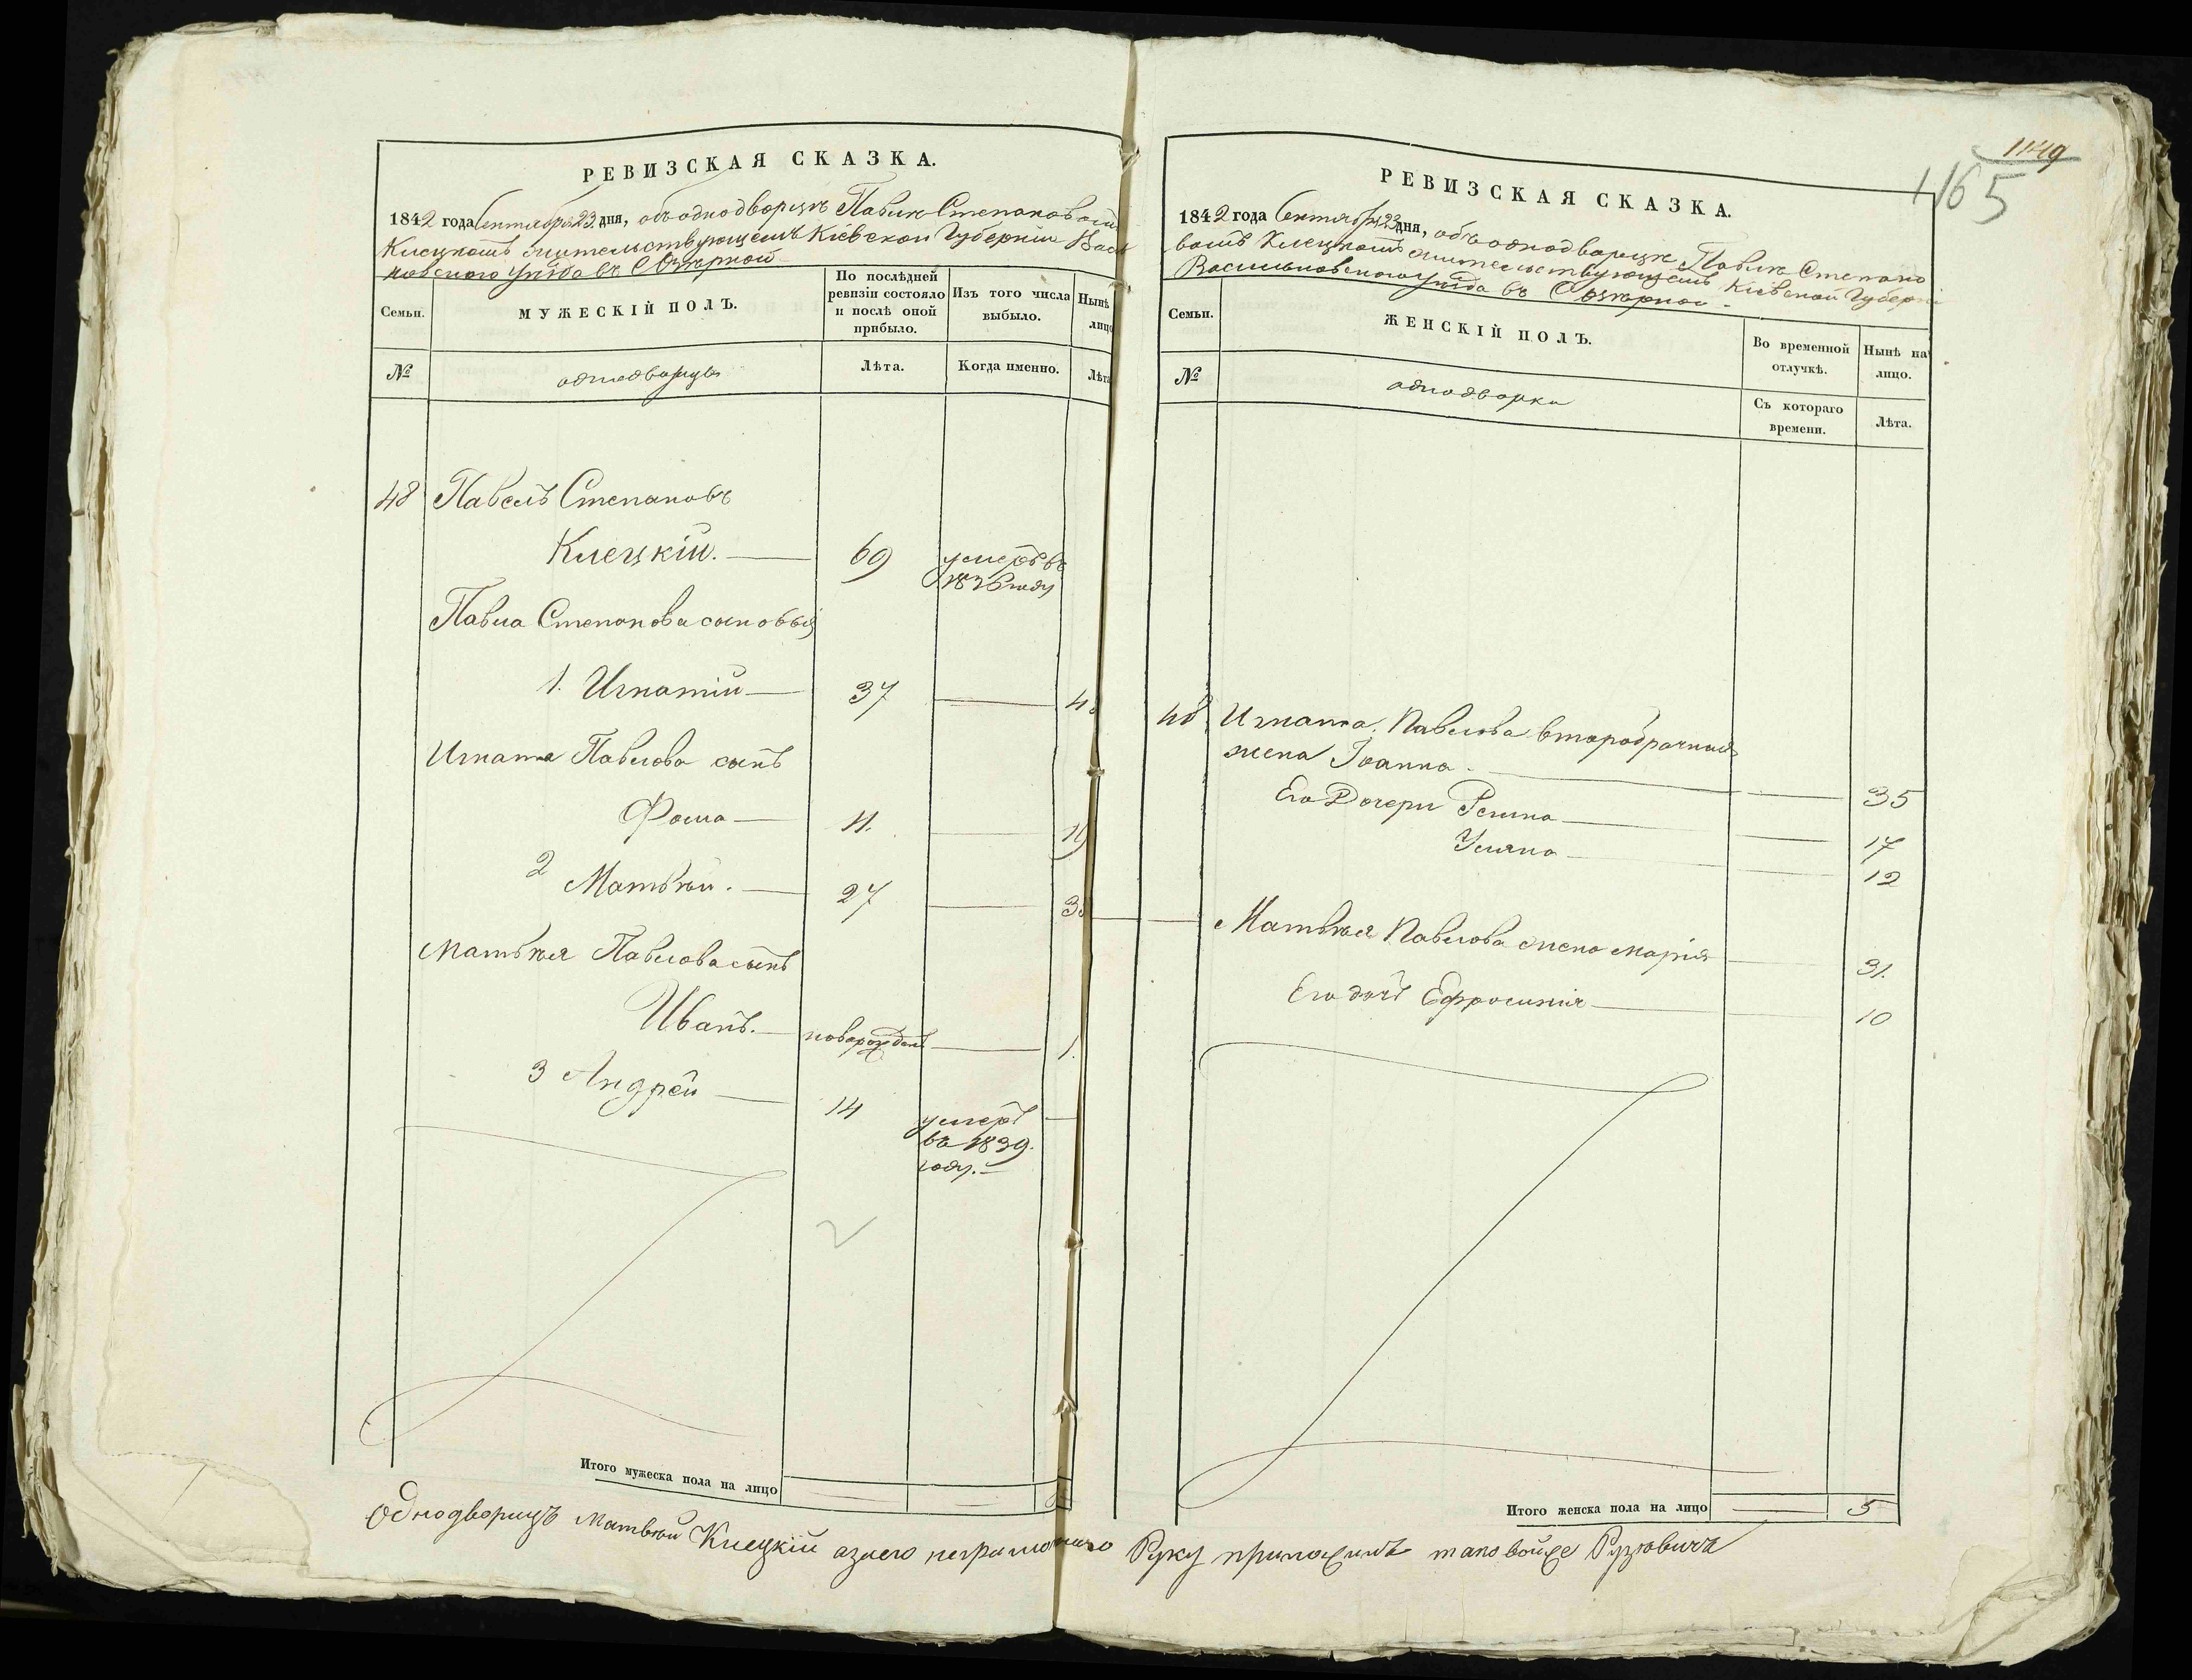 РЕВИЗСКАЯ СКАЗКА.
1842 года Сентября 23 дня, объ однодворцѣ Павлѣ Степановомъ
Клецкомъ жительствующемъ Кіевской Губерніи Василь
ковскаго уѣзда въ С Озѣрной
Семьи.
МУЖЕСКІЙ ПОЛЪ.
По послѣдней
ревизіи состояло
и послѣ оной
прибыло.
Изъ того числа
выбыло.
Нынѣ
лицо
№
однодворцы
Лѣта.
Когда именно.
Лѣта
48 Павелъ Степановъ
Клецкій. 69 умеръ въ
1836 году
Павла Степанова сыновья
1. Игнатій 37
Игната Павлова сынъ
Фома 11. 19
2 Матвѣй. 27
Матвѣя Павлова сынъ
Иванъ. новорожденъ 1.
3 Андрей 14 умеръ
въ 1839.
году.
Итого мужеска пола на лицо
1149
1165
РЕВИЗСКАЯ СКАЗКА.
1842 года Сентября 23 дня, объ однодворцѣ Павлѣ Степано
вомъ Клецкомъ жительствующемъ Кіевской Губерніи
Васильковскаго уѣзда въ С Озѣрной
Семьи.
ЖЕНСКІЙ ПОЛЪ.
Во временной
отлучкѣ.
Нынѣ на
лицо.
№
однодворки
Съ котораго
времени.
Лѣта.
48 Игната Павлова второбрачная
жена Іоанна 35
Его Дочери 17
Уляна 12
Матвѣя Павлова жена Марія 31.
Его дочь Ефросинія 10
Итого женска пола на лицо 5
Однодворецъ Матвѣй Клецкій а за его неграмотнаго Руку приложилъ таковойже Рузовичъ